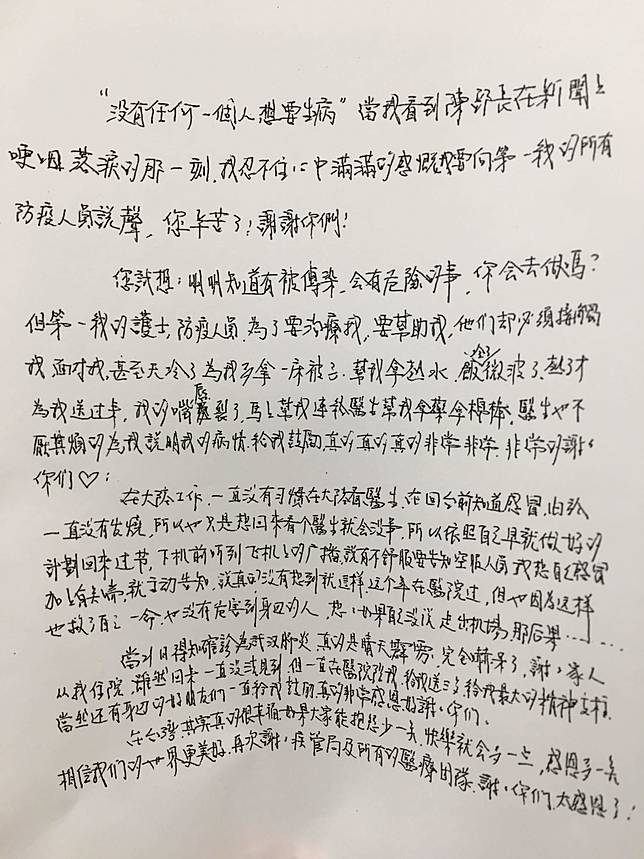 “没有任何一個人想要生病”當我看到陳部長在新聞上
哽咽落淚的那一刻,我忍不住心中滿滿的感慨我要向第一綫的所有
防疫人員說聲,您辛苦了!謝謝你們!
您試想:明明知道有被傳染,会有危險的事,你会去做嗎?
但第一綫的護士,防疫人員,為了要治療我,要幫助我,他们却必須接觸
我,面对我,甚至天冷了為我多拿一床被子,幫我拿热水,飯冷了微波了,热了才
為我送过来,我的嘴唇裂了,馬上幫我連絡醫生幫我拿藥拿棉棒,醫生也不
厭其煩的為我說明我的病情,給我鼓勵,真的真的真的非常非常,非常的謝謝
你们♡:
在大陸工作,一直沒有习慣在大陸看醫生,在回台前知道感冒,由於
一直沒有发燒,所以也只是想回來看个醫生就会沒事,所以依照自己早就做好的
計劃回來过节,下机前听到飞机上的广播,說有不舒服要告知空服人員,我想自己感冒
加上有去,就主动告知,說真的沒有想到就這样,这个年在醫院过,但也因為这样
也救了自己一命,也沒有危害到身边的人,想,如果自己沒說,走出机場,那后果……
當小日得知確診為武汉肺炎,真的是晴天霹靂,完全嚇呆了,謝謝家人
从我住院,雖然回來一直沒見到,但一直在醫院陪我,給我送,給我最大的精神支柱,
當然还有身边的好朋友们一直給我鼓励,真的非常感恩,好謝謝你们。
在台灣,其实真的很幸福,如果大家能抱怨少一点,快樂就会多一点,感恩多一点
相信我们的世界更美好,再次謝謝疾管局及所有的醫療团隊,謝謝你们,太感恩了!